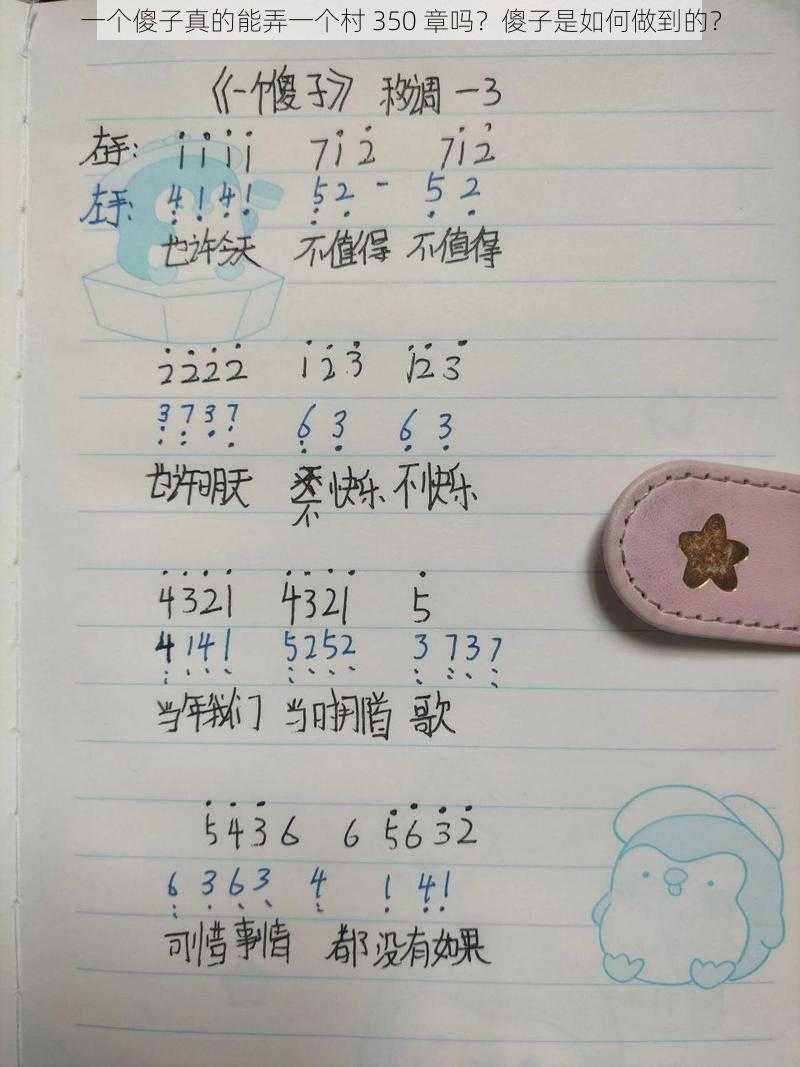 一个傻子真的能弄一个村 350 章吗？傻子是如何做到的？
《一个傻子》 移调 -3
右手： 1 1 1 1 7 1 2 7 1 2
左手： 4 1 4 1 5 2 - 5 2
也许今天 不值得 不值得
2 2 2 2 1 2 3 1 2 3
3 7 3 7 6 3 6 3
也许明天 不快乐 不快乐
4 3 2 1 4 3 2 1 5
4 1 4 1 5 2 5 2 3 7 3 7
当年我们 当时拥着 歌
5 4 3 6 6 5 6 3 2
6 3 6 3 4 1 4 1
可惜事情 都没有如果